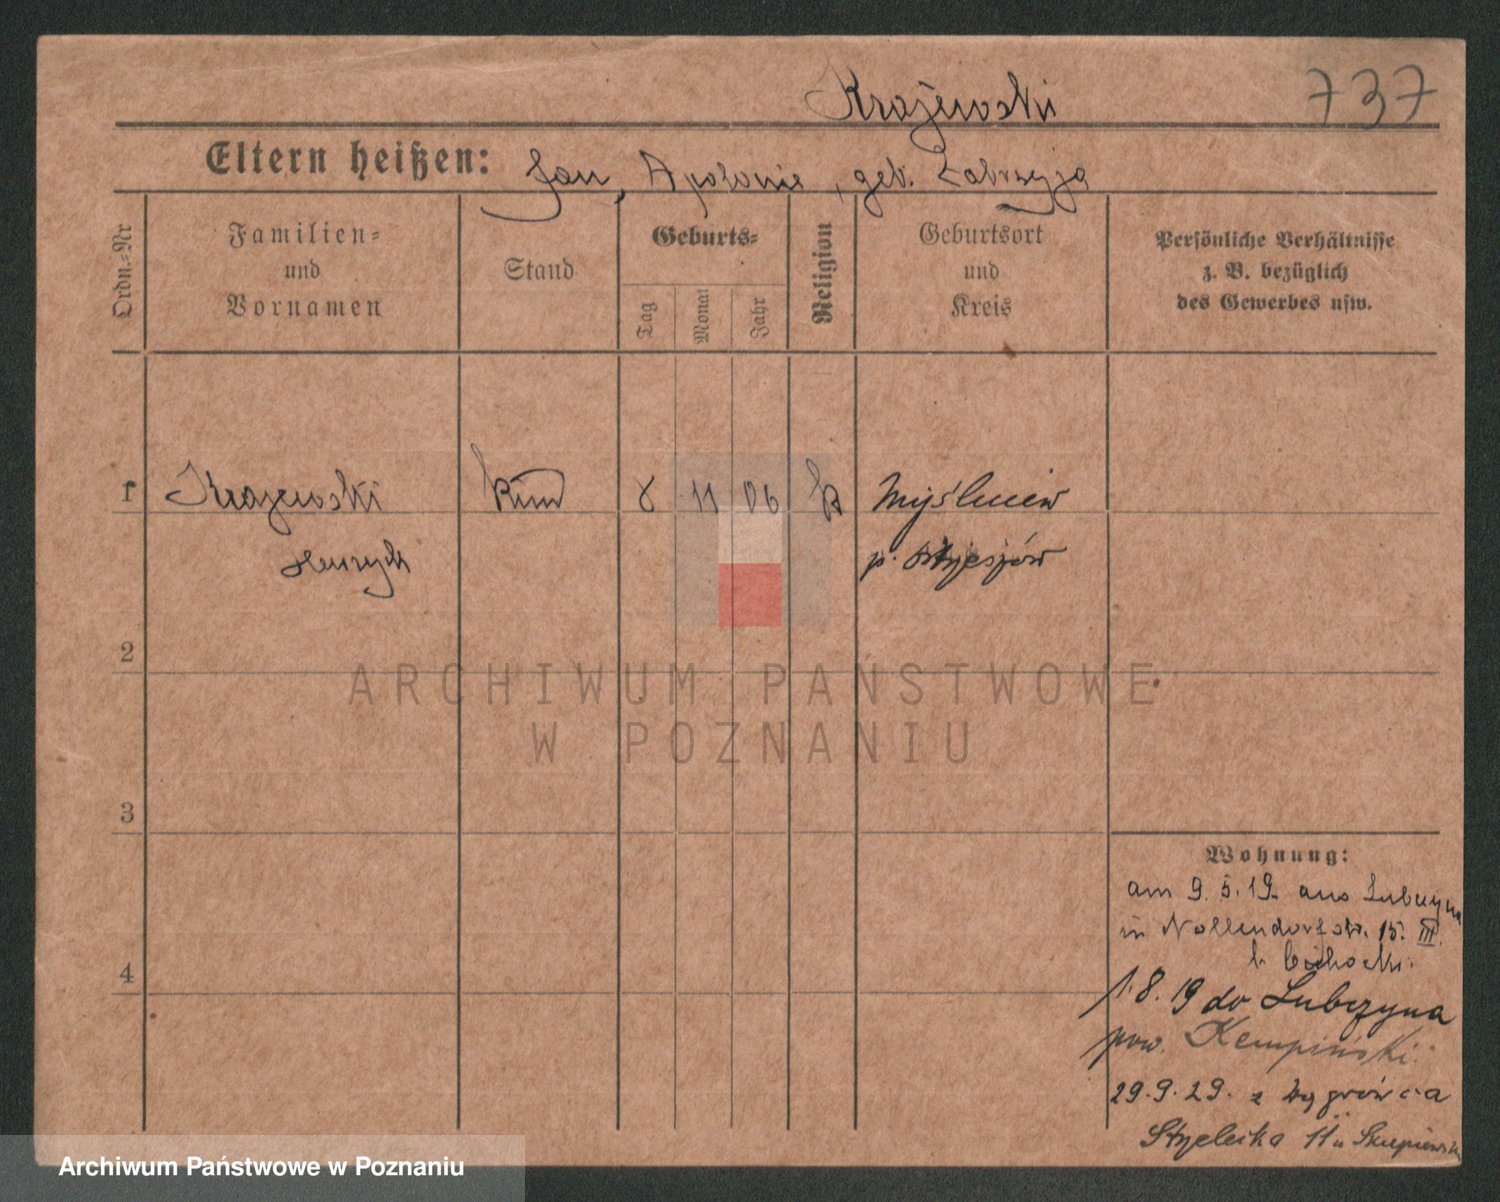 Krajewski 737
Eltern heißen: Jan, Apolonie, geb. Zabrzyja
Ordn.-Nr
Familien-
und
Vornamen
Stand
Geburts-
Tag
Monat
Jahr
Religion
Geburtsort
und
Kreis
Persönliche Verhältnisse
z. B. bezüglich
des Gewerbes usw.
1 Krajewski 8 11 06 k Myślniew
Henryk p.
2
ARCHIWUM PAŃSTWOWE
W POZNANIU
3
Wohnung:
am 9. 5. 19. aus Lubczyna
in Nollendorfstr. 15. III.
b. Cichocki.
4
1.8.19 do Lubczyna
pow. Kempiński.
29.9.29. z
Strzelecka 11 u
Archiwum Państwowe w Poznaniu